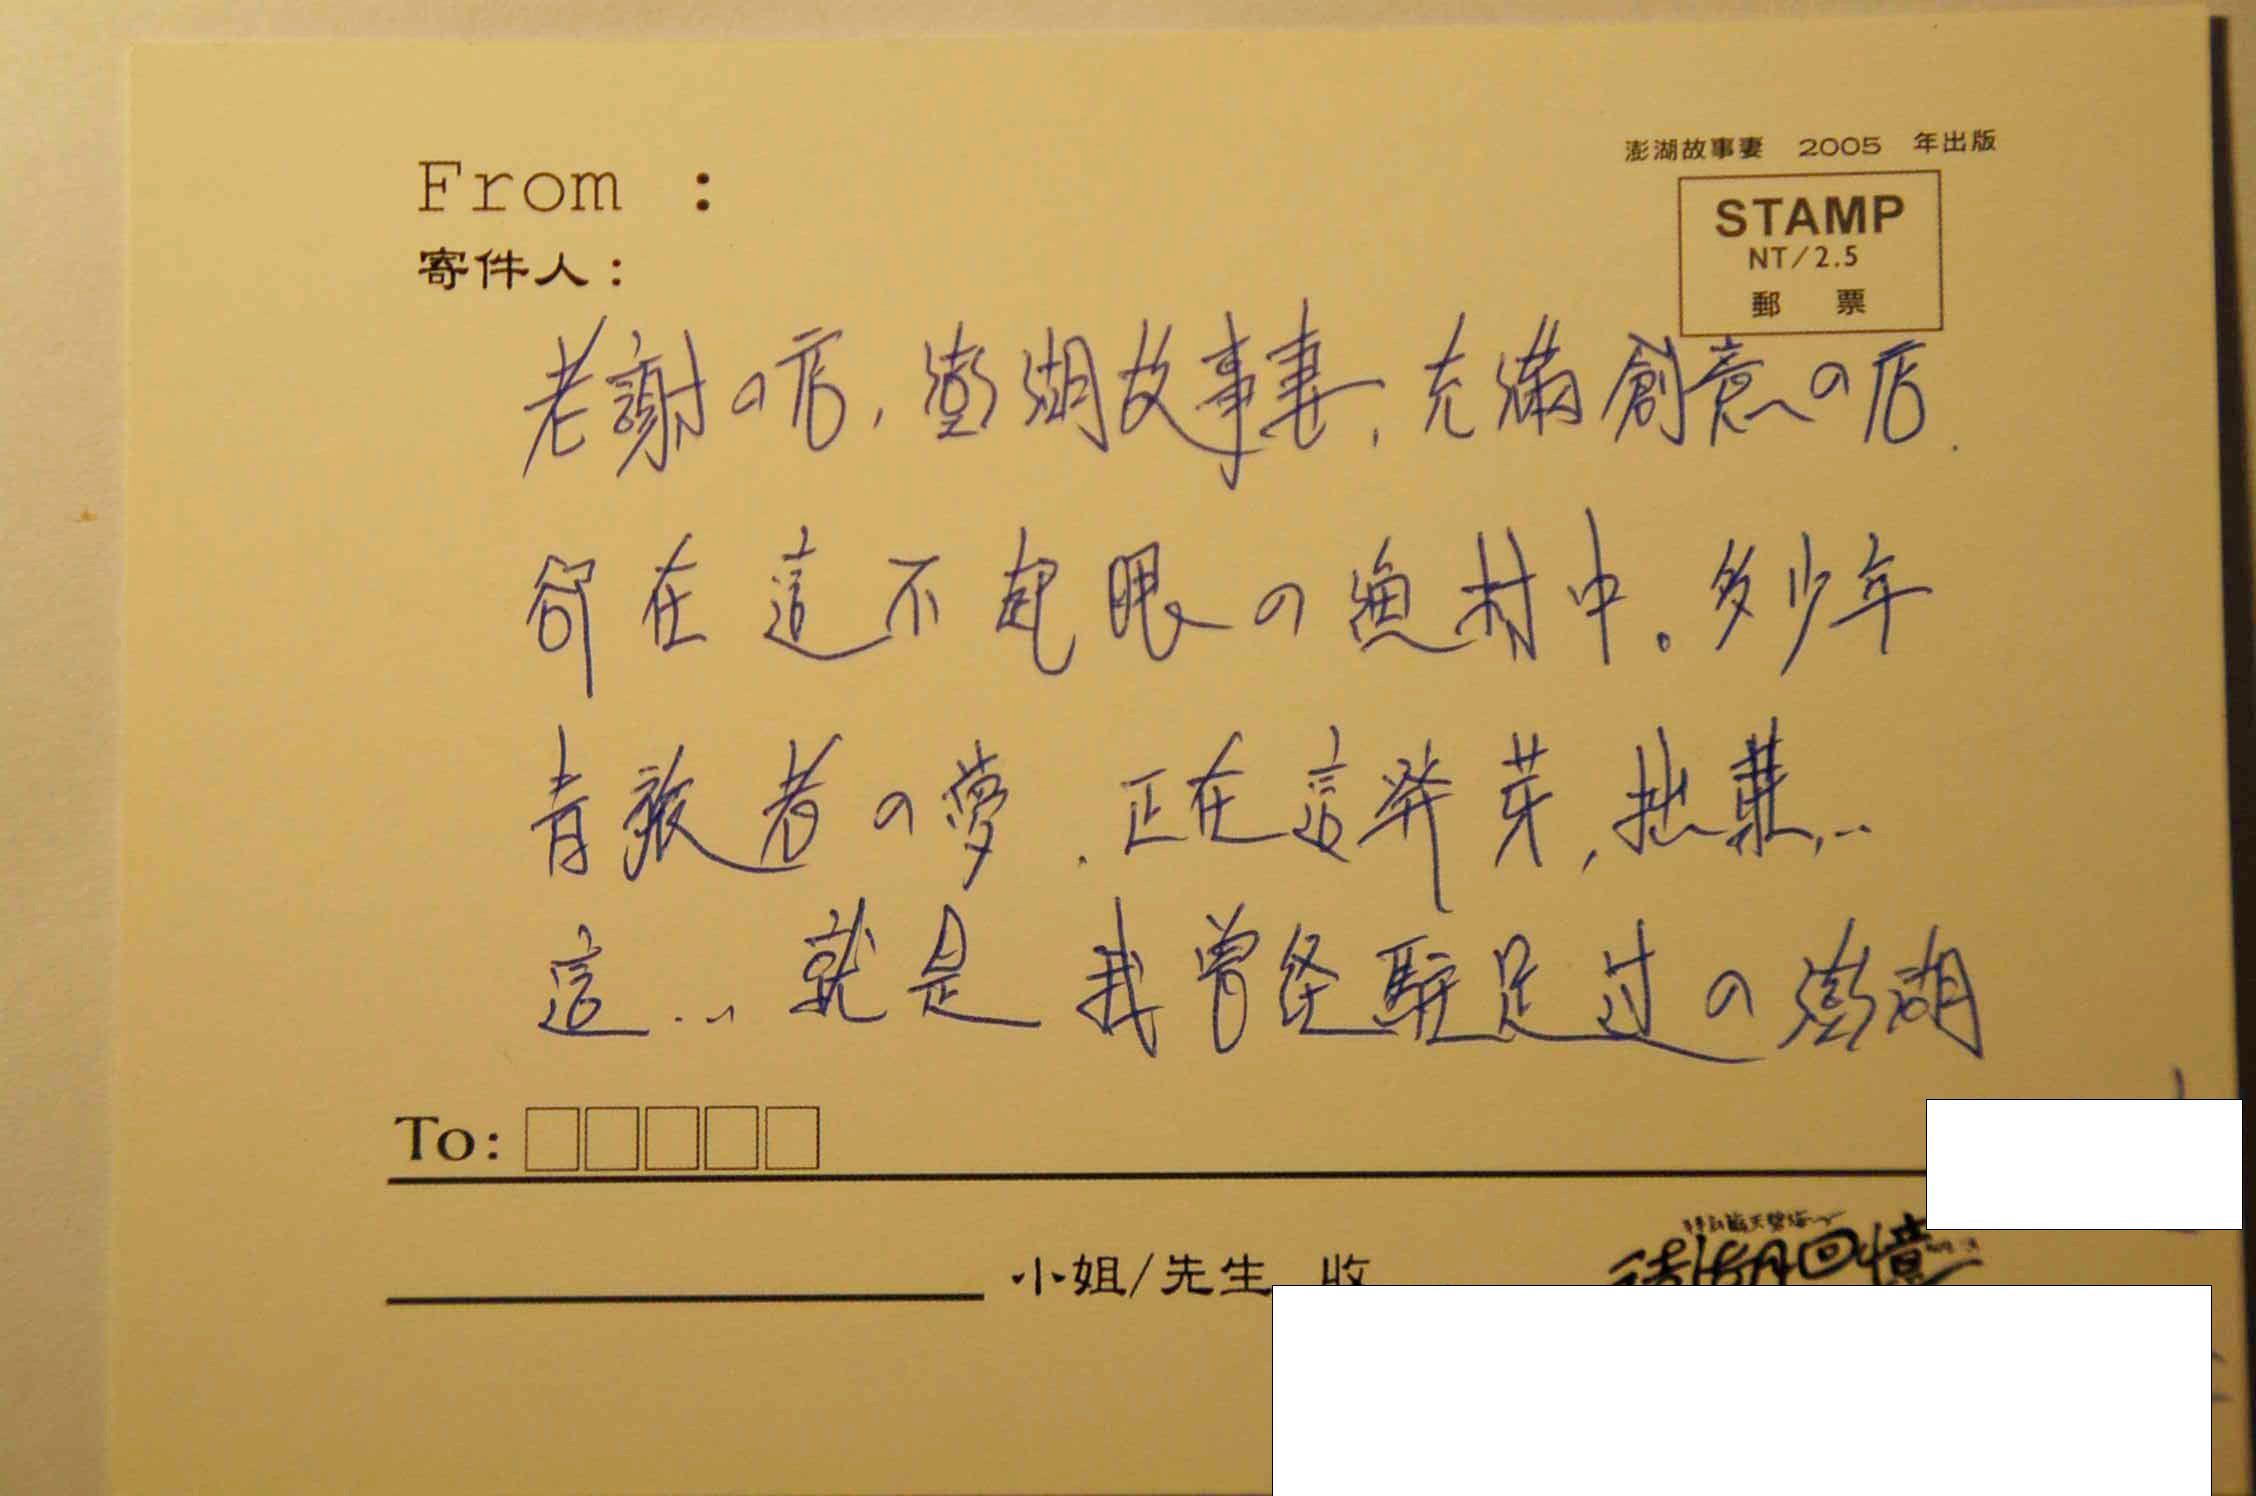 澎湖故事妻 2005 年出版
From :
STAMP
NT/2.5
郵 票
寄件人:
老謝の店,澎湖故事妻,充滿創意の店.
卻在這不起眼の漁村中。多少年
青敖者の夢.正在這発芽,拙葉...
這...就是我曾经駐足过の澎湖
To:
小姐/先生 收
澎湖回憶